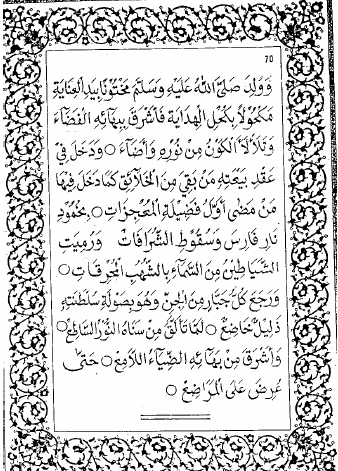 ٦٥
وَوُلِدَ صَلَّى اللهُ عَلَيْهِ وَسَلَّمَ مَخْتُوْنًا بِيَدِ الْعِنَايَةِ
مَكْحُوْلًا بِكُحْلِ الْهِدَايَةِ فَأَشْرَقَ بِبَهَائِهِ الْفَضَاءُ
وَتَلَأْلَأَ الْكَوْنُ مِنْ نُوْرِهِ وَأَضَاءَ ○ وَدَخَلَ فِيْ
عَقْدِ بَيْعَتِهِ مَنْ بَقِيَ مِنَ الْخَلَائِقِ كَمَا دَخَلَ فِيْهَا
مَنْ مَضَى أَوَّلُ فَضِيْلَةِ الْمُعْجِزَاتِ ○ بِخُمُوْدِ
نَارِ فَارِسَ وَسُقُوْطِ الشُّرَافَاتِ وَرُمِيَتِ
الشَّيَاطِيْنُ مِنَ السَّمَاءِ بِالشُّهُبِ الْمُحْرِقَاتِ ○
وَرَجَعَ كُلُّ جَبَّارٍ مِنَ الْجِنِّ وَهُوَ بِصَوْلَةِ سَلْطَنَتِهِ
ذَلِيْلٌ خَاضِعٌ ○ لَمَّا تَأَلَّقَ مِنْ سَنَاهُ النُّوْرُ السَّاطِعُ ○
وَأَشْرَقَ مِنْ بَهَائِهِ الضِّيَاءُ اللَّامِعُ ○ حَتَّى
عُرِضَ عَلَى الْمَرَاضِعِ ○